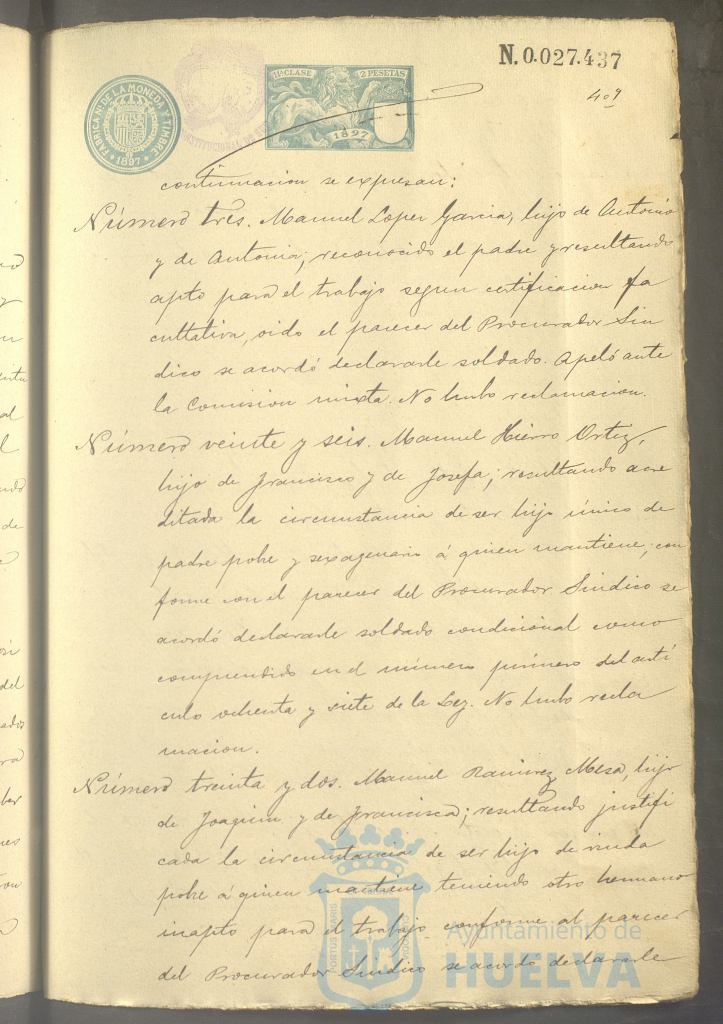 N.0.027.437
409
FABRICA Nal DE LA MONEDA Y TIMBRE
1897
11ª CLASE 2 PESETAS
1897
continuacion se expresan:
Número tres. Manuel Lopez Garcia, hijo de Antonio
y de Antonia; reconocido el padre y resultando
apto para el trabajo segun certificacion fa
cultativa, oido el parecer del Procurador Sin
dico se acordó declararle soldado. Apeló ante
la Comision mixta. No hubo reclamacion.
Número veinte y seis. Manuel Hierro Ortiz,
hijo de Francisco y de Josefa; resultando acre
ditada la circunstancia de ser hijo único de
padre pobre y sexagenario á quien mantiene; con
forme con el parecer del Procurador Sindico se
acordó declararle soldado condicional como
comprendido en el número primero del artí
culo ochenta y siete de la Ley. No hubo recla
macion.
Número treinta y dos. Manuel Ramirez Mesa, hijo
de Joaquin y de Francisca; resultando justifi
cada la circunstancia de ser hijo de viuda
pobre á quien mantiene teniendo otro hermano
inapto para el trabajo conforme al parecer
del Procurador Sindico se acordó declararle
Ayuntamiento de
HUELVA